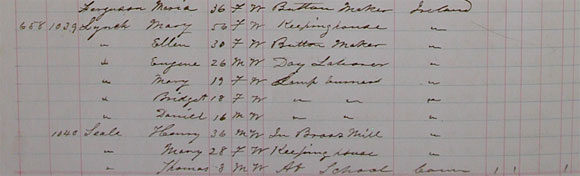 Ferguson Maria 36 F W Button Maker Ireland
658 1039 Lynch Mary 56 F W Keeping house "
" Ellen 30 F W Button Maker "
" Eugene 26 M W Day Laborer "
" Mary 19 F W Lamp burners "
" Bridget 18 F W " " "
" Daniel 16 M W " " "
1040 Seale Henry 36 M W In Brass Mill "
" Mary 28 F W Keeping house "
" Thomas 8 M W At School Conn 1 1 1